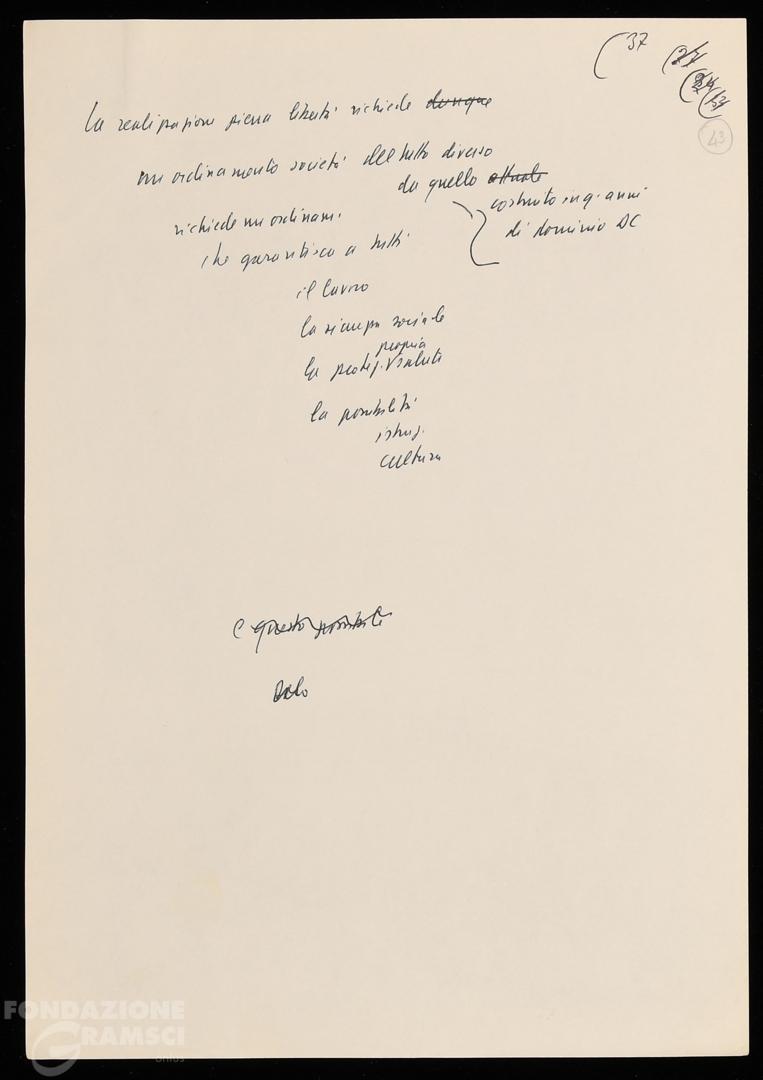 (37
43
La realizzazione piena libertà richiede dunque
un ordinamento società del tutto diverso
da quello attuale
costruito in q. anni
di dominio DC
richiede un ordinam.
che garantisca a tutti
il lavoro
la sicurezza sociale
propria
la protez. salute
la possibilità
istruz.
cultura
e questo possibile
Solo
FONDAZIONE
GRAMSCI
onlus